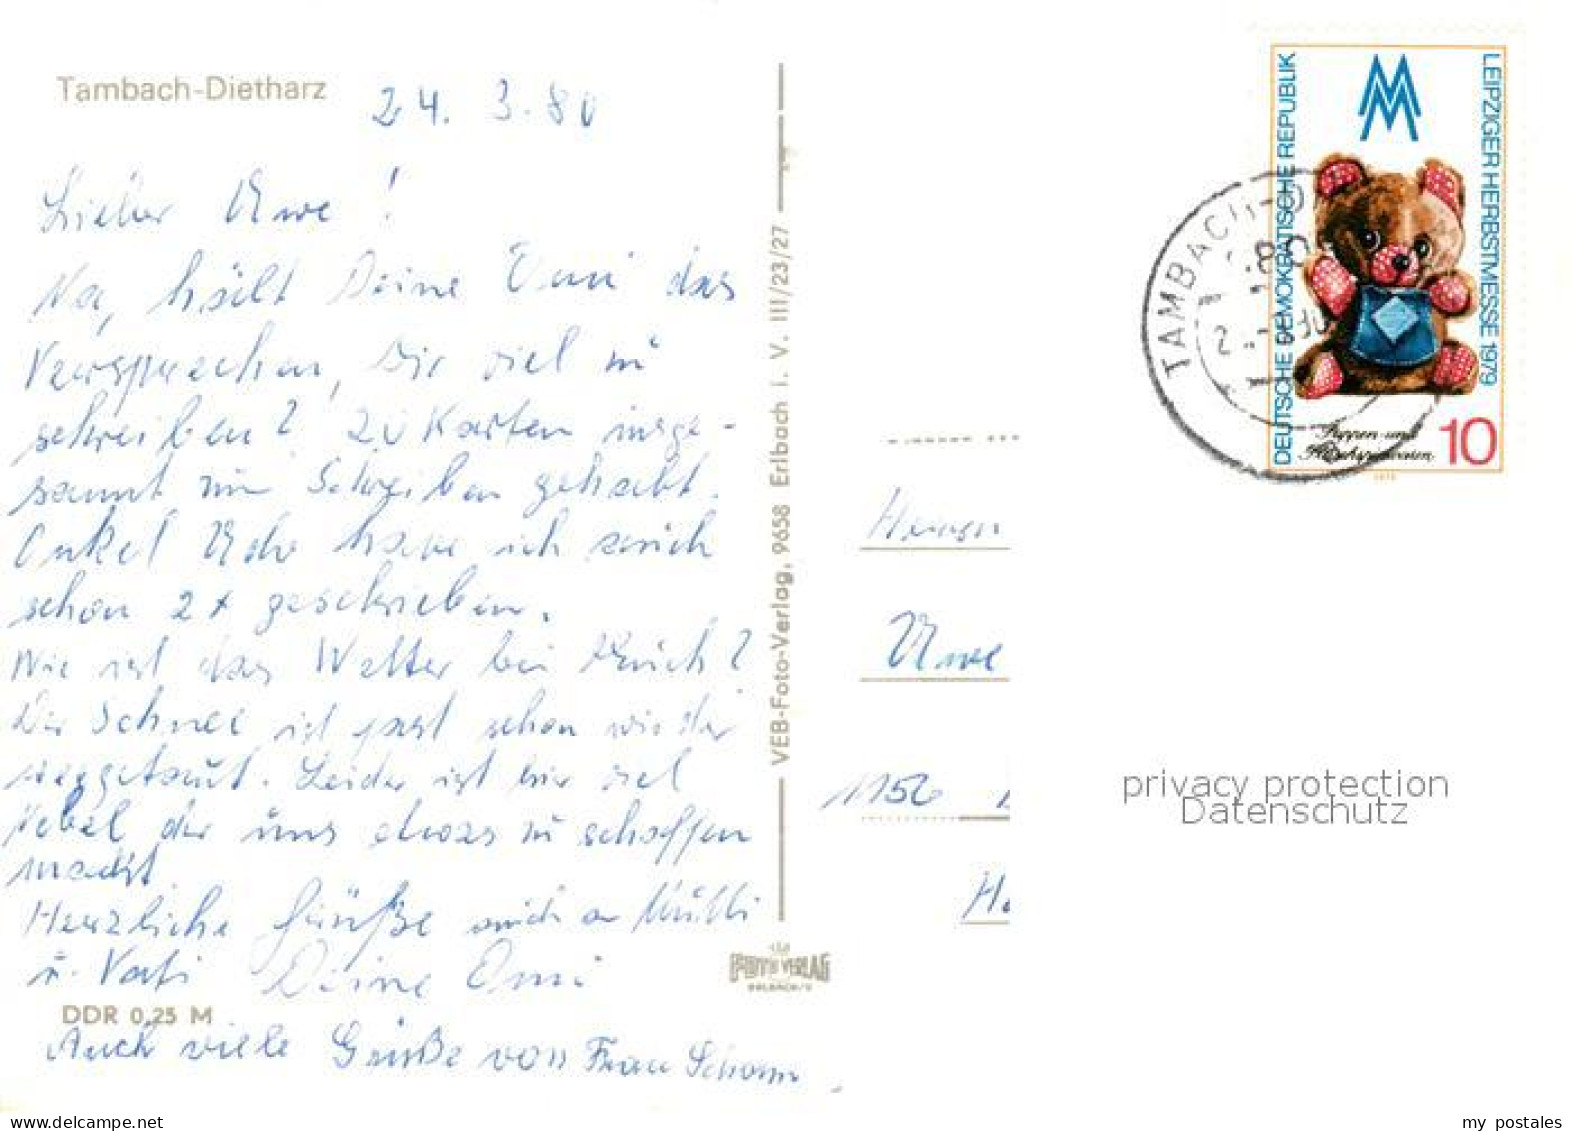 Tambach-Dietharz
24. 3. 80
Lieber Uwe!
Na, hält Deine Omi das
Versprechen, Dir viel zu
schreiben? 20 Karten insge-
samt zum Schreiben gehabt.
Onkel Udo habe ich auch
schon 2x geschrieben.
Wie ist das Wetter bei Euch?
Der Schnee ist fast schon wieder
weggetaut. Leider ist hier viel
Nebel der uns etwas zu schaffen
macht.
Herzliche Grüße auch an Mutti
u. Vati Deine Omi
DDR 0,25 M
Auch viele Grüße von Frau
VEB-Foto-Verlag, 9658 Erlbach i. V. III/23/27
FOTO VERLAG
ERLBACH/V
DEUTSCHE DEMOKRATISCHE REPUBLIK
LEIPZIGER HERBSTMESSE 1979
Puppen- und
10
TAMBACH-DI
Herrn
Uwe
1156
privacy protection
Datenschutz
my postales